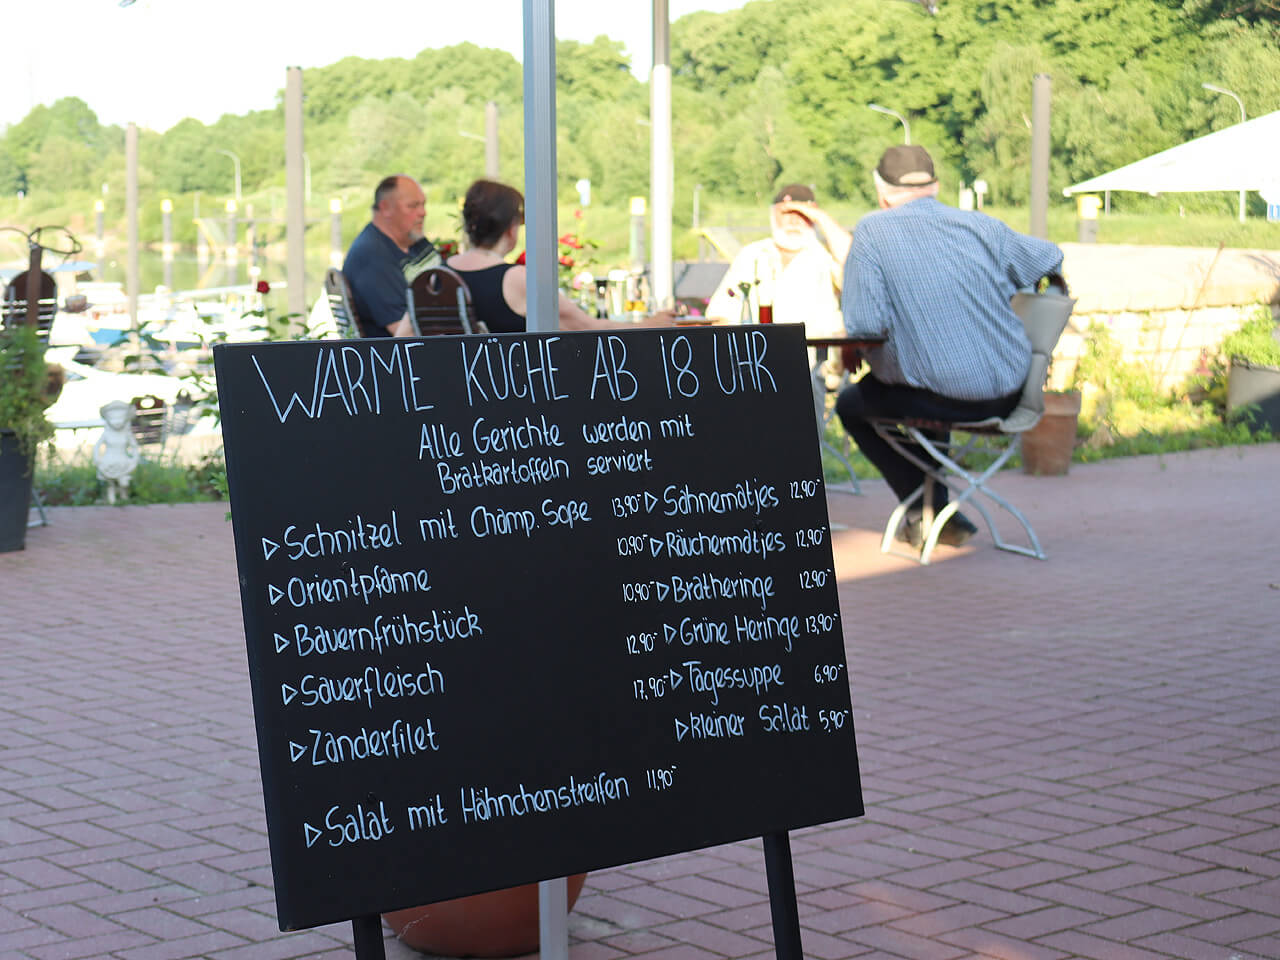 WARME KÜCHE AB 18 UHR
Alle Gerichte werden mit
Bratkartoffeln serviert
▷ Schnitzel mit Champ. Soße 13,90-
▷ Orientpfanne 10,90-
▷ Bauernfrühstück 10,90-
▷ Sauerfleisch 12,90-
▷ Zanderfilet 17,90-
▷ Salat mit Hähnchenstreifen 11,90-
▷ Sahnematjes 12,90-
▷ Räuchermatjes 12,90-
▷ Bratheringe 12,90-
▷ Grüne Heringe 13,90-
▷ Tagessuppe 6,90-
▷ kleiner Salat 5,90-